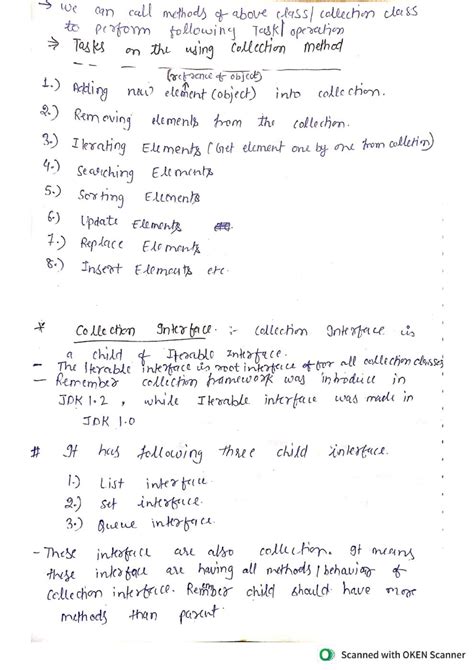 → we can call methods of above class/ collection class
to perform following Task/ operation
⇒ Tasks on the using Collection method
(reference of object)
1.) Adding new element (object) into collection.
2.) Removing elements from the collection.
3.) Iterating Elements (Get element one by one from colletion)
4.) Searching Elements
5.) Sorting Elements
6.) Update Elements
7.) Replace Elements
8.) Insert Elements etc.
* Collection Interface :- Collection Interface is
a child of Iterable Interface.
- The Iterable interface is root interface of for all collection classes
- Remember collection framework was introduce in
JDK 1.2 , while Iterable interface was made in
JDK 1.0
# It has following three child interface.
1.) List interface.
2.) Set interface.
3.) Queue interface.
- These interface are also collection. It means
these interface are having all methods/ behavior of
Collection interface. Remember child should have more
methods than parent.
Scanned with OKEN Scanner